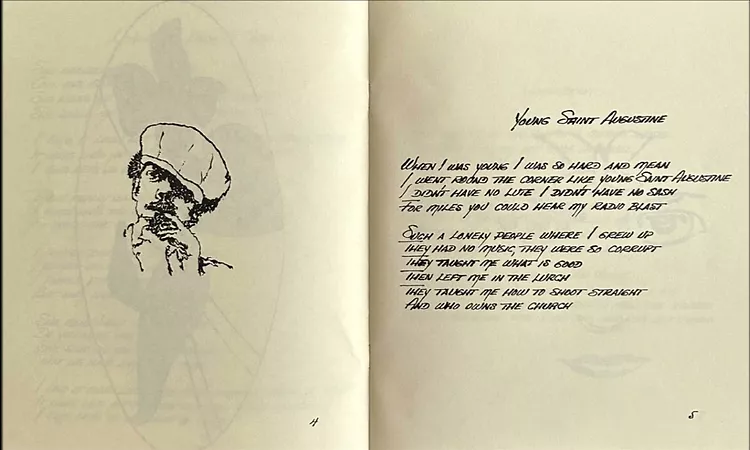 4
YOUNG SAINT AUGUSTINE
WHEN I WAS YOUNG I WAS SO HARD AND MEAN
I WENT ROUND THE CORNER LIKE YOUNG SAINT AUGUSTINE
I DIDN'T HAVE NO LUTE I DIDN'T HAVE NO SASH
FOR MILES YOU COULD HEAR MY RADIO BLAST
SUCH A LONELY PEOPLE WHERE I GREW UP
THEY HAD NO MUSIC, THEY WERE SO CORRUPT
THEY TAUGHT ME WHAT IS GOOD
THEN LEFT ME IN THE LURCH
THEY TAUGHT ME HOW TO SHOOT STRAIGHT
AND WHO OWNS THE CHURCH
5